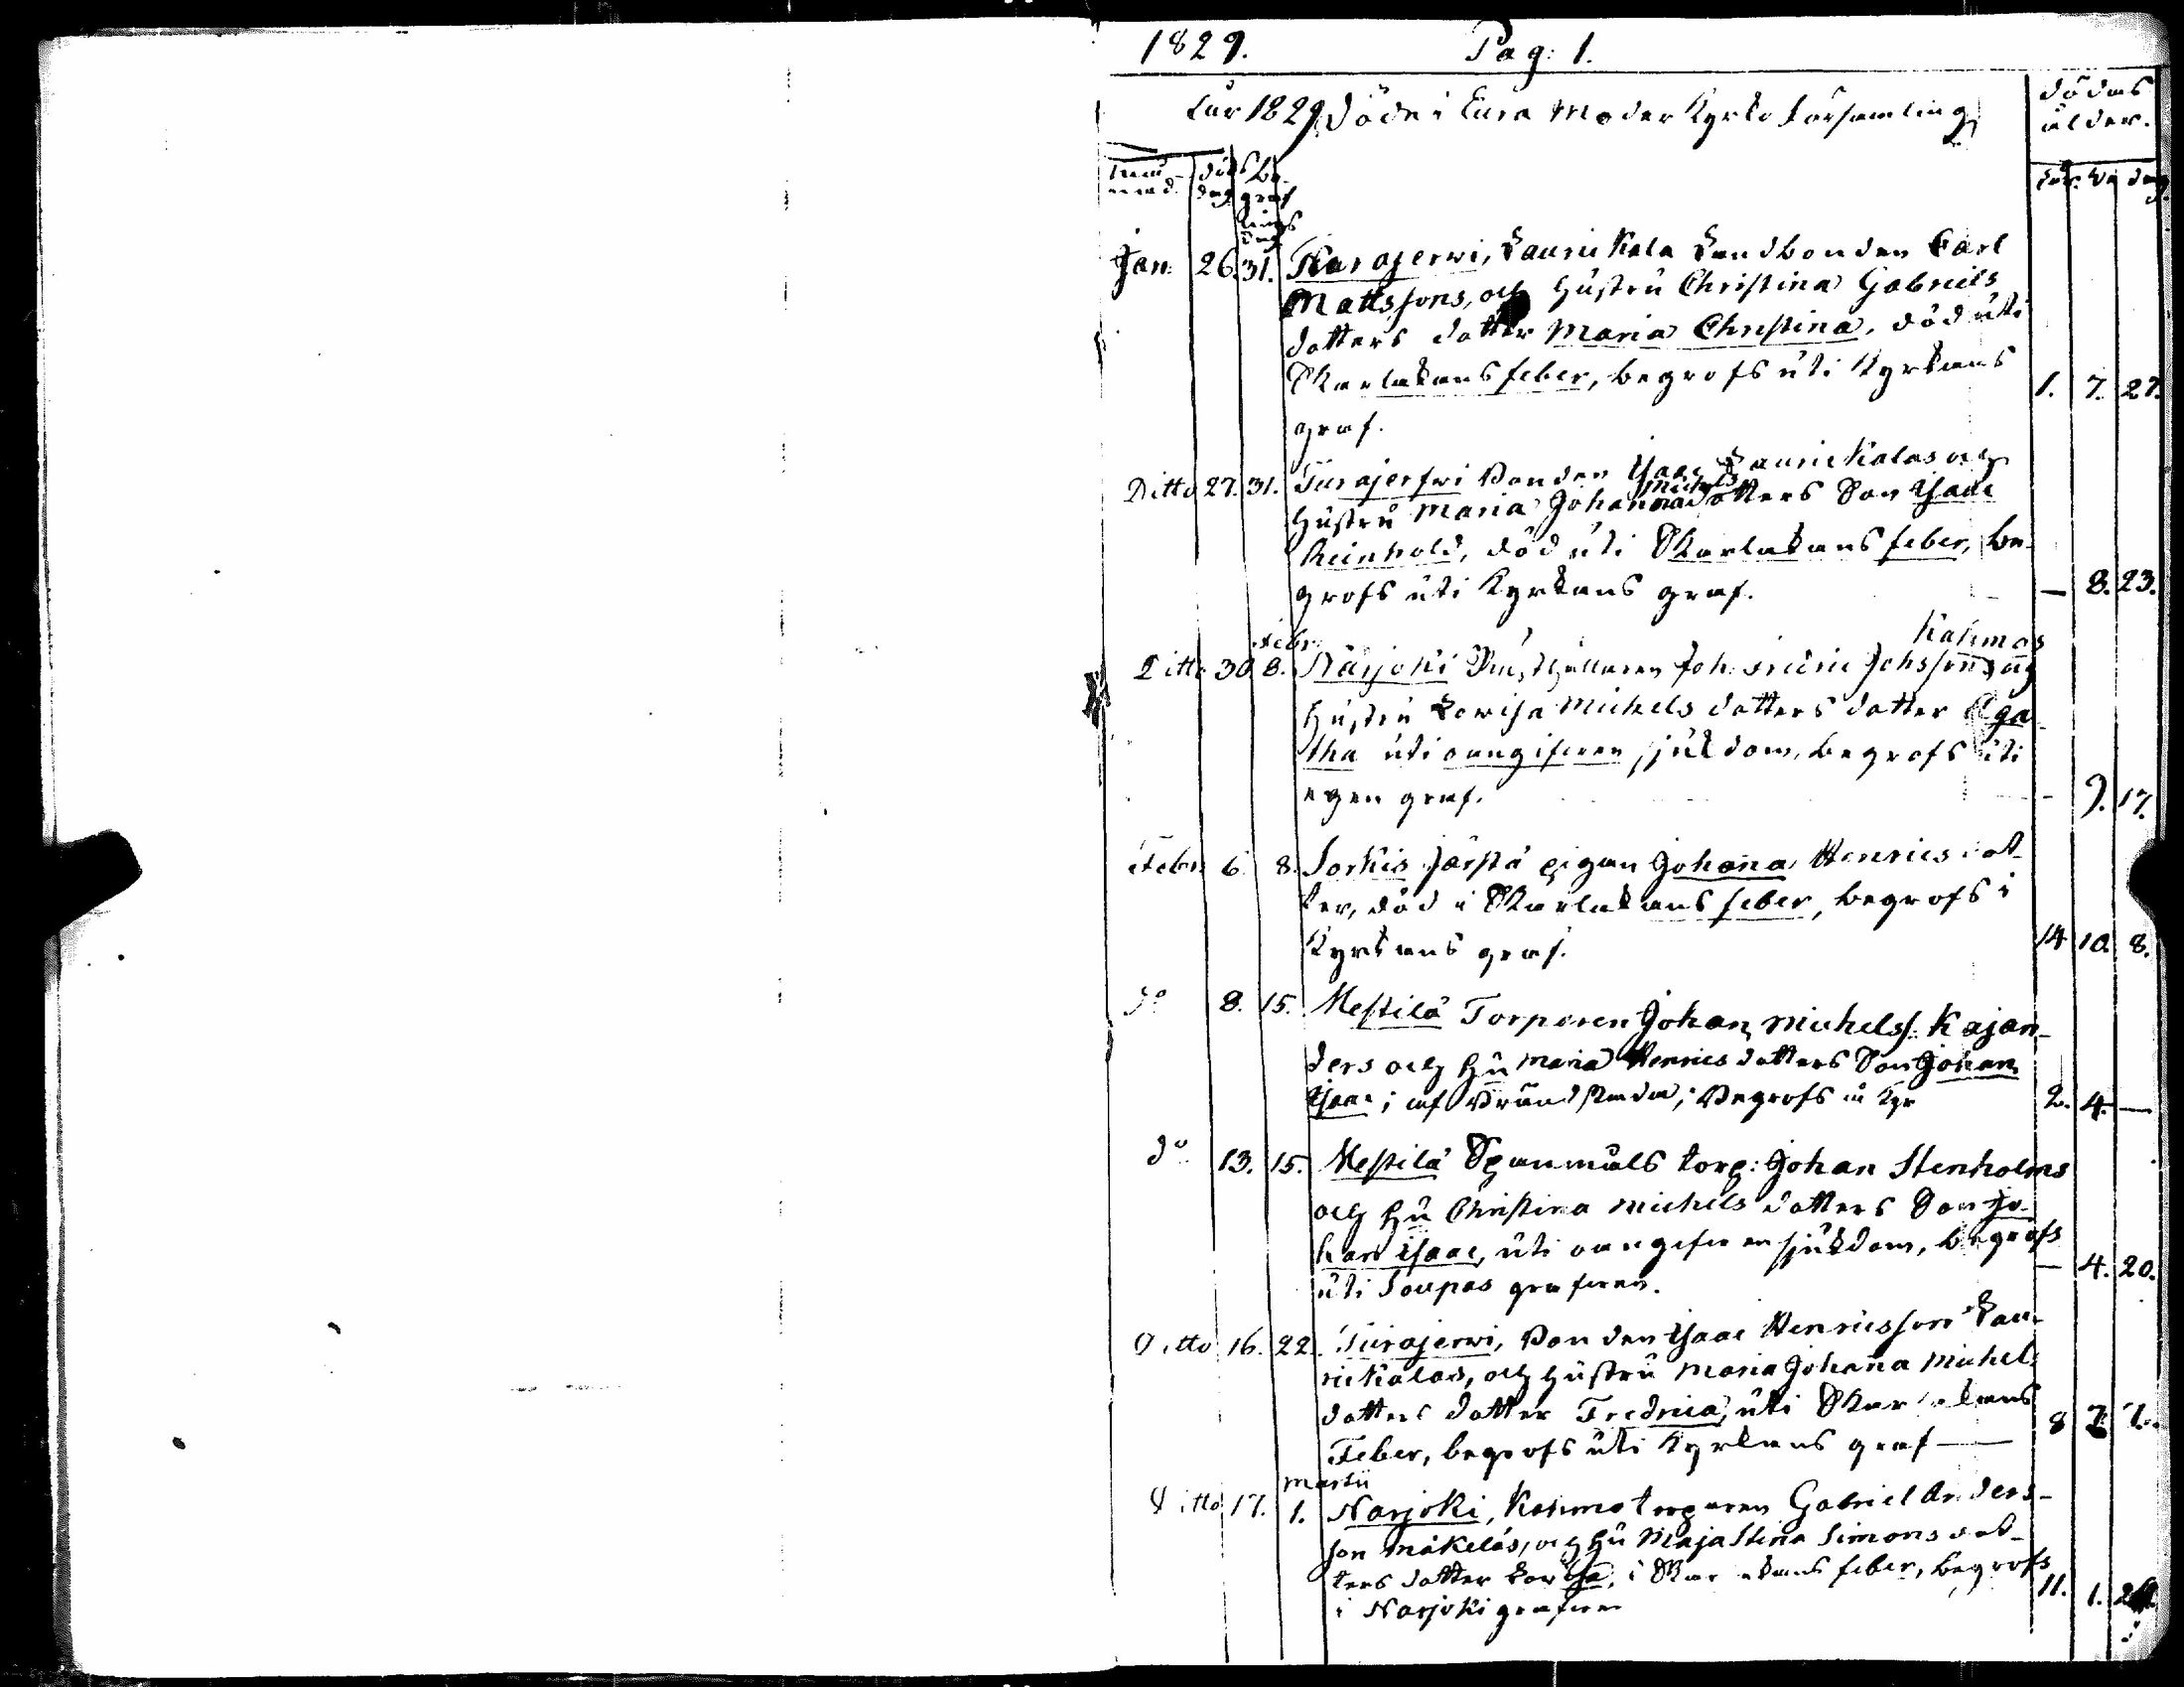 1829. Pag: 1.
År 1829 döde i Eura Moder Kyrko församling
dödas
ålder.
Måu-
nad. döds
dag be-
graf
nings
dag år. m. dag.
Jan: 26. 31. Turajerwi, Laurikala Landbonden Carl
Mattssons, och Hustru Christina Gabriels
dotters dotter Maria Christina, död uti
Skarlakansfeber, begrofs uti Kyrkans 1. 7. 27.
graf.
Ditto 27. 31. Turajerfwi Bonden Isaac Laurikalas och
Michels
Hustru Maria Johanna dotters Son Isaac
Reinhold, död uti Skarlakans feber, be-
grofs uti Kyrkans graf. — 8. 23.
Febr: Kahmas
Ditto 30. 8. Närjoki Joh: Fridric Johssons och
Hustru Lowisa Michels dotters dotter Aga-
tha uti oangifwen sjukdom, begrofs uti
egen graf. — 9. 17.
Febr: 6. 8. Sorkis Järstä pigan Johanna Henrics dot-
ter, död i Skarlakans feber, begrofs i
Kyrkans graf. 14 10. 8.
do 8. 15. Mestilä Torparen Johan Michelss: Kajan-
ders och Hu Maria Henrics dotters Son Johan
Isaac; af Brandskada; Begrofs i Kyr 2. 4. —
do 13. 15. Mestilä Spanmåls torp: Johan Stenholms
och Hu Christina Michels dotters Son Jo-
han Isaac, uti oangifwen sjukdom, begrofs
uti Soupas grafwen. — 4. 20.
Ditto 16. 22. Turajerwi, Bonden Isaac Henricsson Lau-
rikalas, och Hustru Maria Johanna Michels
dotters dotter Fredrica, uti Skarlakans
Feber, begrofs uti Kyrkans graf — 8
Martii
Ditto 17. 1. Narjoki, Kahma torparen Gabriel Anders-
son Mäkeläs, och Hu Maja Stina Simons dot-
ters dotter Lovisa, i Skarlakans feber, begrofs
i Narjoki grafwen 11. 1.